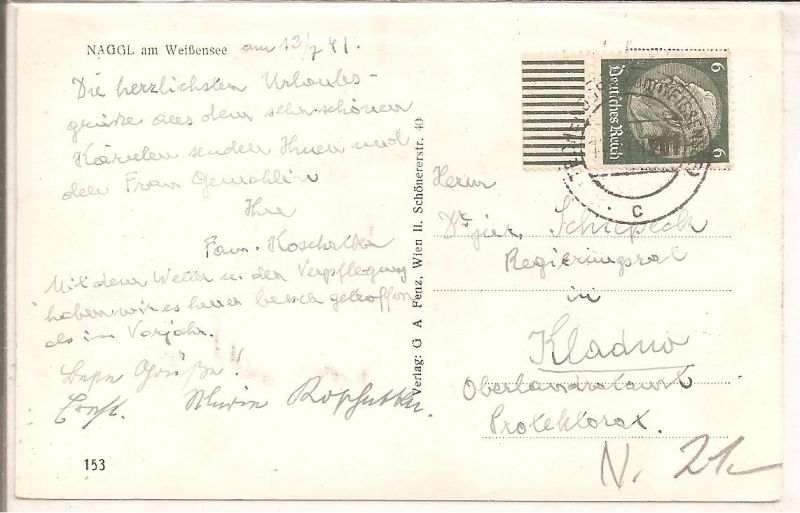 NAGGL am Weißensee am 13/7 41.
Die herzlichsten Urlaubs-
grüße aus dem sehr schönen
Kärnten senden Ihnen und
der Frau Gemahlin
Ihre
Fam. Koschatka
Mit dem Wetter u. der Verpflegung
haben wir es heuer besser getroffen
als im Vorjahr.
Beste Grüße!
Ernst.
153
Verlag: G A Fenz, Wien II. Schönererstr. 40
Deutsches Reich
6
6
C
Herrn
Dr jur.
Regierungsrat
in
Kladno
Oberlandratsamt
Protektorat.